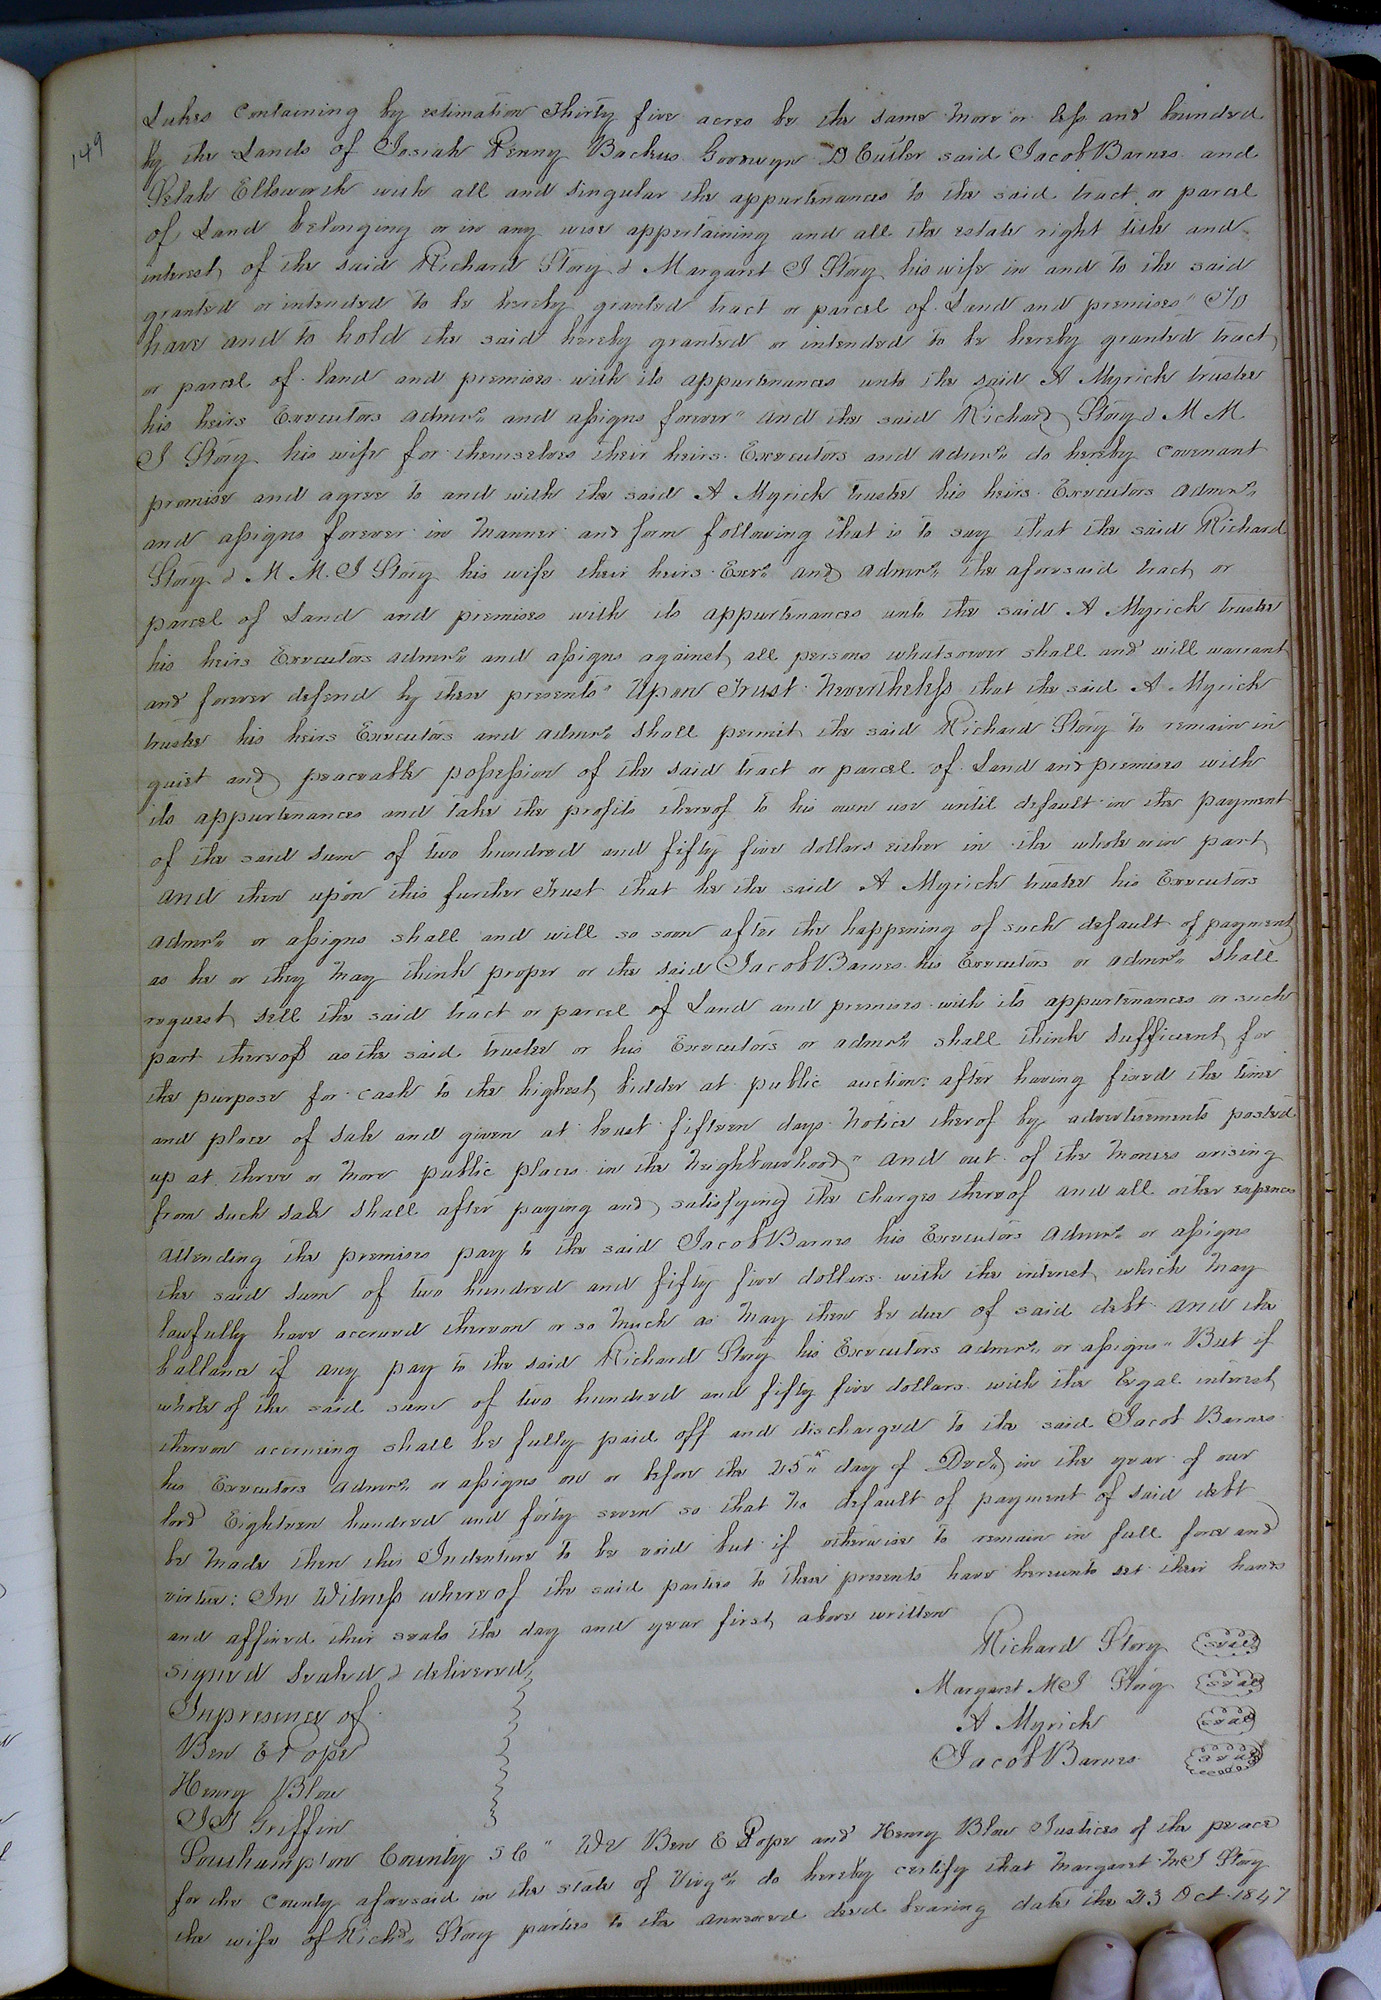 149
Lukes containing by estimation Thirty five acres be the same more or less and bounded
by the Lands of Josiah Penny Backus Goodwyn D Cutler said Jacob Barnes and
Selah Ellsworth with all and singular the appurtenances to the said tract or parcel
of Land belonging or in any wise appertaining and all the estate right title and
interest of the said Richard Story & Margaret J Story his wife in and to the said
granted or intended to be hereby granted tract or parcel of Land and premises" To
have and to hold the said hereby granted or intended to be hereby granted tract
or parcel of land and premises with its appurtenances unto the said A Myrick trustee
his heirs Executors admrs and assigns forever" and the said Richard Story & M M
J Story his wife for themselves their heirs Executors and admrs do hereby covenant
promise and agree to and with the said A Myrick trustee his heirs Executors admrs
and assigns forever in manner and form following that is to say that the said Richard
Story & M M. J Story his wife their heirs Exrs and admrs the aforesaid tract or
parcel of Land and premises with its appurtenances unto the said A Myrick trustee
his heirs Executors admrs and assigns against all persons whatsoever shall and will warrant
and forever defend by these presents" Upon Trust Nevertheless that the said A Myrick
trustee his heirs Executors and admrs shall permit the said Richard Story to remain in
quiet and peaceable possession of the said tract or parcel of Land and premises with
its appurtenances and take the profits thereof to his own use until default in the payment
of the said sum of two hundred and fifty five dollars either in the whole or in part
and then upon this further Trust that he the said A Myrick trustee his Executors
admrs or assigns shall and will so soon after the happening of such default of payment
as he or they may think proper or the said Jacob Barnes his Executors or admrs shall
request sell the said tract or parcel of Land and premises with its appurtenances or such
part thereof as the said trustee or his Executors or admrs shall think sufficient for
the purpose for cash to the highest bidder at public auction: after having fixed the time
and place of sale and given at least fifteen days notice therof by advertisements posted
up at three or more public places in the neighbourhood" and out of the monies arising
from such sale shall after paying and satisfying the charges thereof and all other expences
attending the premises pay to the said Jacob Barnes his Executors admrs or assigns
the said sum of two hundred and fifty five dollars with the interest which may
lawfully have accrued thereon or so much as may then be due of said debt and the
ballance if any pay to the said Richard Story his Executors admrs or assigns" But if
whole of the said sum of two hundred and fifty five dollars with the Legal interest
thereon accruing shall be fully paid off and discharged to the said Jacob Barnes
his Executors admrs or assigns on or before the 25th day of Decr in the year of our
lord Eighteen hundred and forty seven so that no default of payment of said debt
be made then this Indenture to be void but if otherwise to remain in full force and
virtue: In Witness whereof the said parties to these presents have hereunto set their hands
and affixed their seals the day and year first above written
Richard Story seal
signed sealed & delivered
Margaret M J Story seal
In presence of
A Myrick seal
Ben E Pope
Jacob Barnes seal
Henry Blow
J J Griffin
Southampton County S C" We Ben E Pope and Henry Blow Justices of the peace
for the County aforesaid in the state of Virga do hereby certify that Margaret M J Story
the wife of Richd Story parties to the annexed deed bearing date the 23 Oct 1847